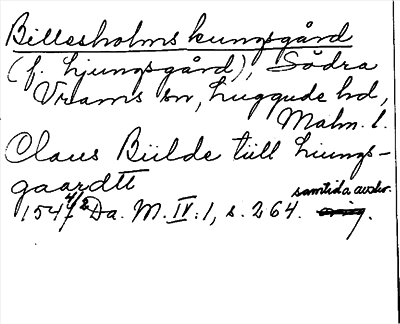 Billesholms kungsgård
(f. Ljungsgård), Södra
Vrams sn, Luggude hd,
Malm. l.
Claus Biilde tiill Liungs-
gaardtt
1547 4/2 Da. M. IV:1, s. 264. samtida avskr.